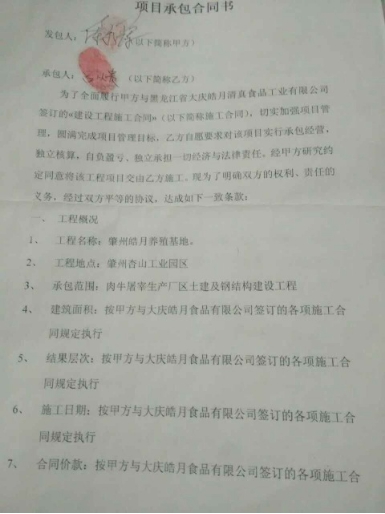 项目承包合同书
发包人： （以下简称甲方）
承包人： （以下简称乙方）
为了全面履行甲方与黑龙江省大庆皓月清真食品工业有限公司
签订的《建设工程施工合同》(以下简称施工合同)，切实加强项目管
理，圆满完成项目管理目标，乙方自愿要求对该项目实行承包经营，
独立核算，自负盈亏、独立承担一切经济与法律责任。经甲方研究约
定同意将该工程项目交由乙方施工。现为了明确双方的权利、责任的
义务，经过双方平等的协议，达成如下一致条款：
一、工程概况
1、 工程名称：肇州皓月养殖基地。
2、 工程地点：肇州杏山工业园区
3、 承包范围：肉牛屠宰生产厂区土建及钢结构建设工程
4、 建筑面积：按甲方与大庆皓月食品有限公司签订的各项施工合
同规定执行
5、 结果层次：按甲方与大庆皓月食品有限公司签订的各项施工合
同规定执行
6、 施工日期：按甲方与大庆皓月食品有限公司签订的各项施工合
同规定执行
7、 合同价款：按甲方与大庆皓月食品有限公司签订的各项施工合